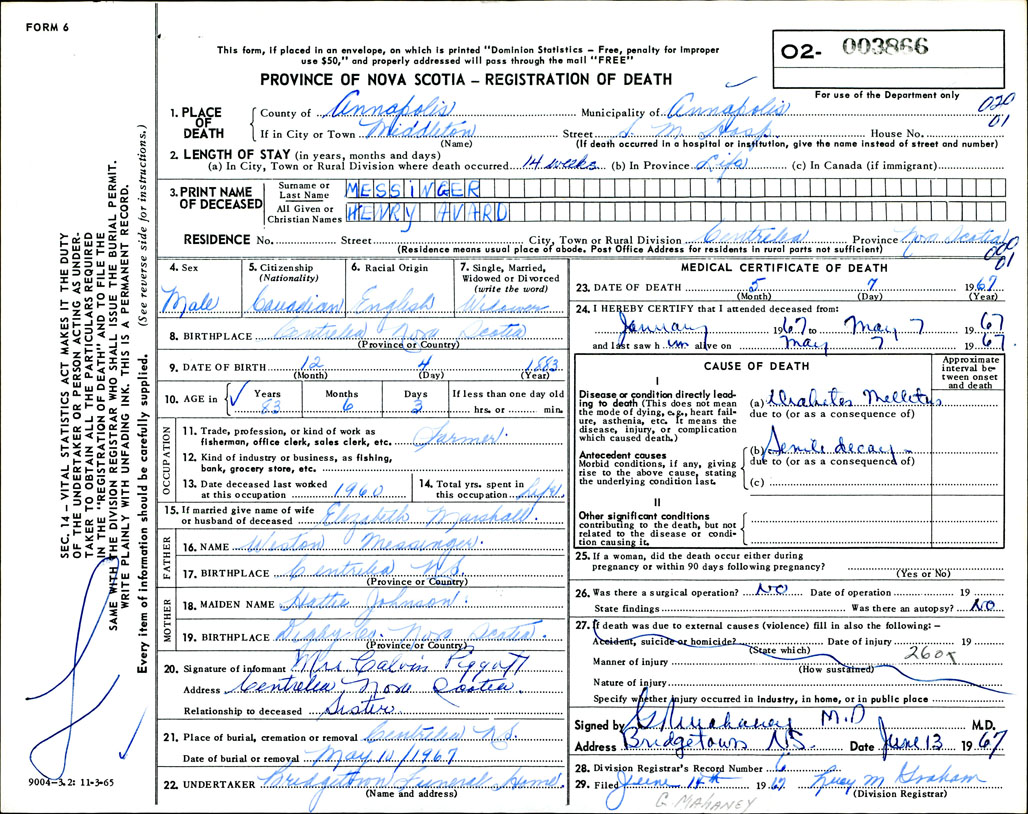 FORM 6
This form, if placed in an envelope, on which is printed "Dominion Statistics – Free, penalty for improper
use $50," and properly addressed will pass through the mail "FREE"
PROVINCE OF NOVA SCOTIA – REGISTRATION OF DEATH
O2- 003866
For use of the Department only
020
01
1. PLACE OF DEATH
County of Annapolis Municipality of Annapolis
If in City or Town Middleton Street S. M. Hosp. House No.
(Name) (If death occurred in a hospital or institution, give the name instead of street and number)
2. LENGTH OF STAY (in years, months and days)
(a) In City, Town or Rural Division where death occurred 14 weeks (b) In Province Life (c) In Canada (if immigrant)
3. PRINT NAME OF DECEASED
Surname or Last Name MESSINGER
All Given or Christian Names HENRY AVARD
RESIDENCE No. Street City, Town or Rural Division Centrelea Province Nova Scotia
(Residence means usual place of abode. Post Office Address for residents in rural parts not sufficient)
000
01
4. Sex Male
5. Citizenship (Nationality) Canadian
6. Racial Origin English
7. Single, Married, Widowed or Divorced (write the word) Widower
8. BIRTHPLACE Centrelea Nova Scotia
(Province or Country)
9. DATE OF BIRTH 12 4 1883
(Month) (Day) (Year)
10. AGE in Years 83 Months 6 Days 3 If less than one day old hrs. or min.
OCCUPATION
11. Trade, profession, or kind of work as fisherman, office clerk, sales clerk, etc. Farmer.
12. Kind of industry or business, as fishing, bank, grocery store, etc.
13. Date deceased last worked at this occupation 1960
14. Total yrs. spent in this occupation Life.
15. If married give name of wife or husband of deceased Elizabeth Marshall.
FATHER
16. NAME Weston Messinger.
17. BIRTHPLACE Centrelea N.S.
(Province or Country)
MOTHER
18. MAIDEN NAME Hattie Johnson.
19. BIRTHPLACE Digby Co. Nova Scotia.
(Province or Country)
20. Signature of informant Mrs Calvin Piggott
Address Centrelea, Nova Scotia.
Relationship to deceased Sister
21. Place of burial, cremation or removal Centrelea N.S.
Date of burial or removal May 10/1967
22. UNDERTAKER Bridgetown Funeral Home.
(Name and address)
MEDICAL CERTIFICATE OF DEATH
23. DATE OF DEATH 5 7 1967
(Month) (Day) (Year)
24. I HEREBY CERTIFY that I attended deceased from:
January 1967 to May 7 1967
and last saw him alive on May 7 1967
CAUSE OF DEATH
Approximate interval between onset and death
I
Disease or condition directly leading to death (This does not mean the mode of dying, e.g., heart failure, asthenia, etc. It means the disease, injury, or complication which caused death.)
(a) Diabetes Mellitus
due to (or as a consequence of)
Antecedent causes
Morbid conditions, if any, giving rise to the above cause, stating the underlying condition last.
(b) Senile decay
due to (or as a consequence of)
(c)
II
Other significant conditions contributing to the death, but not related to the disease or condition causing it.
25. If a woman, did the death occur either during pregnancy or within 90 days following pregnancy?
(Yes or No)
26. Was there a surgical operation? NO Date of operation 19
State findings Was there an autopsy? NO
27. If death was due to external causes (violence) fill in also the following:–
Accident, suicide or homicide? Date of injury 19
(State which)
260x
Manner of injury
(How sustained)
Nature of injury
Specify whether injury occurred in industry, in home, or in public place
Signed by G Mahaney M.D M.D.
Address Bridgetown NS. Date June 13 1967
28. Division Registrar's Record Number 6
29. Filed June 14th 1967 Lucy M Graham
(Division Registrar)
G. MAHANEY
SEC. 14 – VITAL STATISTICS ACT MAKES IT THE DUTY
OF THE UNDERTAKER OR PERSON ACTING AS UNDER-
TAKER TO OBTAIN ALL THE PARTICULARS REQUIRED
IN THE "REGISTRATION OF DEATH" AND TO FILE THE
SAME WITH THE DIVISION REGISTRAR WHO SHALL ISSUE THE BURIAL PERMIT.
WRITE PLAINLY WITH UNFADING INK. THIS IS A PERMANENT RECORD.
Every item of information should be carefully supplied. (See reverse side for instructions.)
9004–3.2: 11-3-65